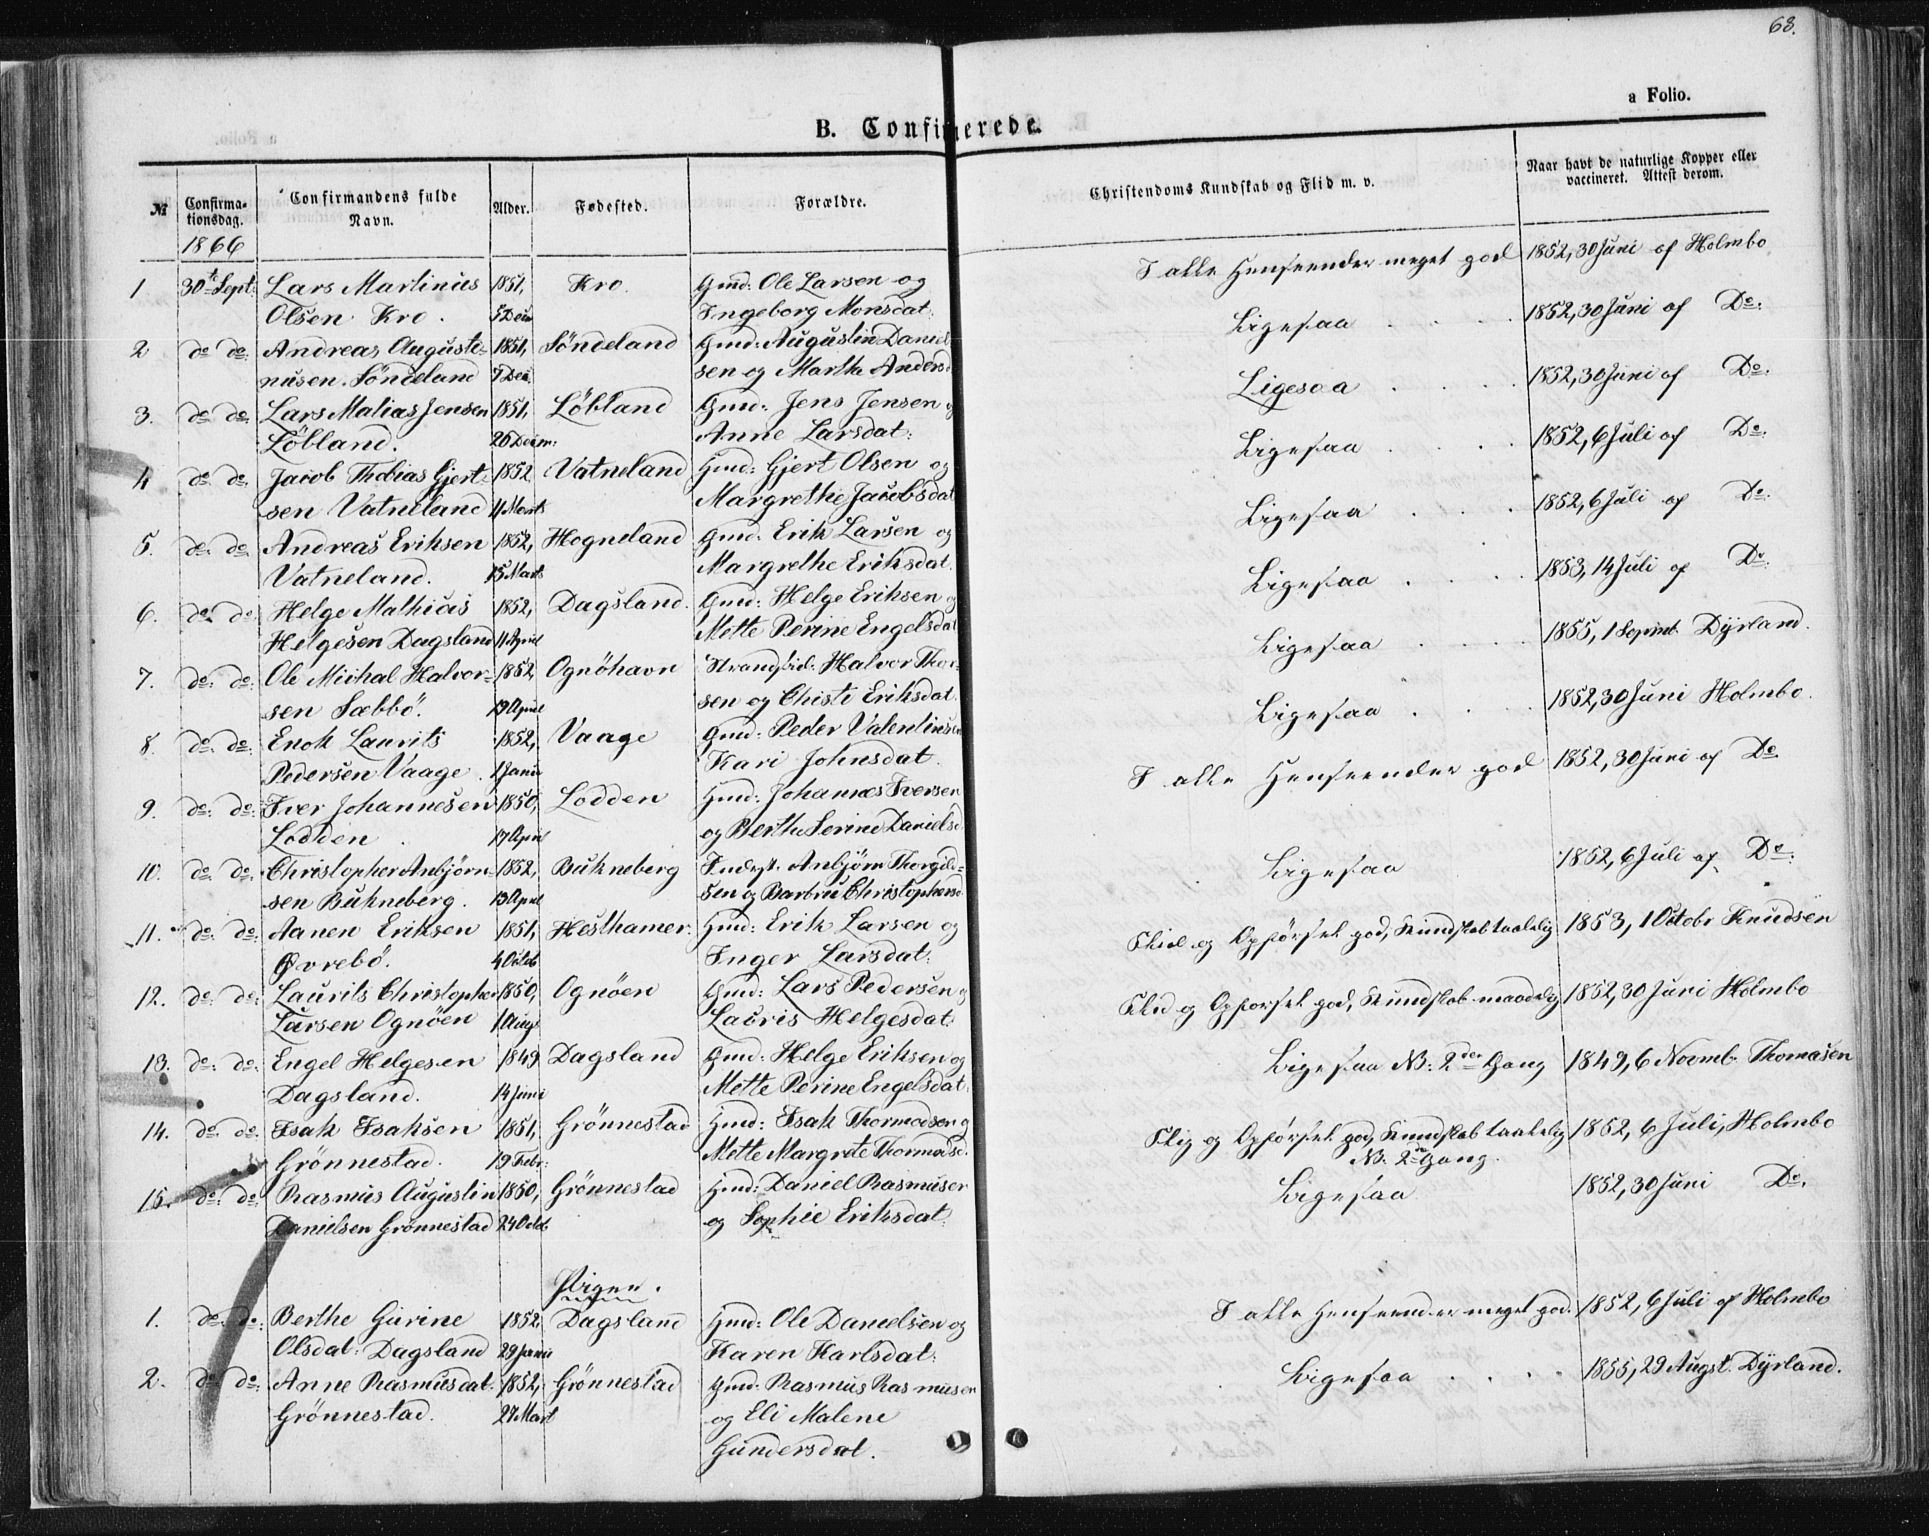 68.
a Folio.
B. Confirmerede.
№ Confirmationsdag. Confirmandens fulde Navn. Alder. Fødested. Forældre. Christendoms Kundskab og Flid m. v. Naar havt de naturlige Kopper eller vaccineret. Attest derom.
1866
1 30te Sept: Lars Martinius 1851, Kro. Gmd: Ole Larsen og I alle Henseender meget god 1852, 30 Juni af Holmbo
Olsen Kro. 5 Decm Ingeborg Monsdat:
2 do do: Andreas Augusti- 1851, Søndeland Gmd: Augustin Daniel- Ligesaa 1852, 30 Juni af Do:
nusen Søndeland 7 Dec. sen og Martha Andersd
3. do do: Lars Matias Jensen 1851, Løbland Gmd: Jens Jensen og Ligesaa 1852, 30 Juni af Do.
Løbland. 20 Decm: Anne Larsdat:
4 do do: Jacob Thobias Gjert- 1852 Vatneland Gmd: Gjert Olsen og Ligesaa 1852, 6 Juli af Do.
sen Vatneland 11 Marts Margrethe Jacobsdat
5. do. do Andreas Eriksen 1852, Hogneland Gmd: Erik Larsen og Ligesaa 1852, 6 Juli af Do:
Vatneland. 15 Marts Margrethe Eriksdat.
6. do do Helge Mathias 1852, Dagsland. Gmd: Helge Eriksen og Ligesaa 1853, 14 Juli af Do
Helgesen Dagsland 11 April Mette Perine Engelsdat
7. do: do: Ole Michal Halvor- 1852, Ognöhavn Strandsid: Halvor Thor- Ligesaa 1855, 1 Septmb. Dÿrland.
sen Sæbbö. 19 April sen og Christi Eriksdat.
8. do: do: Enok Laurits 1852, Vaage Gmd: Peder Valentinsen Ligesaa 1852, 30 Juni Holmbo.
Pedersen Vaage. 1 Janu Kari Johnsdat.
9. do: do: Iver Johannesen 1850, Lodden Gmd: Johannes Iversen I alle Henseender god 1852, 30 Juni af Do
Lodden 17 April og Berthe Serine Danielsd
10. do: do: Christopher Anbjørn- 1852, Bukneberg Inderst. Anbjørn Thorgild- Ligesaa 1852, 6 Juli af Do:
sen Bukneberg. 13 April sen og Barbru Christophersd
11. do: do: Aanen Eriksen 1851, Hesthamer. Gmd: Erik Larsen og Flid og Opførsel god, Kundskab taalelig 1853, 1 Octobr Knudsen
Øvrebö. 4 Octob Inger Larsdat:
12. do: do: Laurits Christopher 1850, Ognöen Gmd: Lars Pedersen og Flid og Opførsel god, Kundskab maadelig 1852, 30 Juni Holmbo
Larsen Ognöen 1 Augs Lauris Helgesdat:
13. do: do: Engel Helgesen 1849 Dagsland Gmd: Helge Eriksen og Ligesaa NB: 2den Gang 1849, 6 Novmb. Thomasen
Dagsland. 14 Juni Mette Perine Engelsdat:
14. do: do: Isak Isaksen 1851, Grönnestad Gmd: Isak Thormodsen og Flig og Opførsel god, Kundskab taalelig 1852, 6 Juli, Holmbo
Grönnestad. 19 Febr: Mette Margrete Thormodsd. NB. 2den Gang.
15. do: do: Rasmus Augustin 1850, Grönnestad Gmd: Daniel Rasmusen Ligesaa 1852, 30 Juni Do.
Danielsen Grönnestad 24 Octob og Sophie Eriksdat:
Piger.
1. do: do: Berthe Gurine 1852 Dagsland Gmd: Ole Danielsen og I alle Henseender meget god. 1852, 6 Juli af Holmbo
Olsdat: Dagsland 29 Janu Karen Karlsdat:
2. do do: Anne Rasmusdat. 1852, Grönnestad Gmd: Rasmus Rasmusen Ligesaa 1855, 29 Augst. Dÿrland.
Grönnestad. 27 Mart og Eli Malene
Gundersdat.